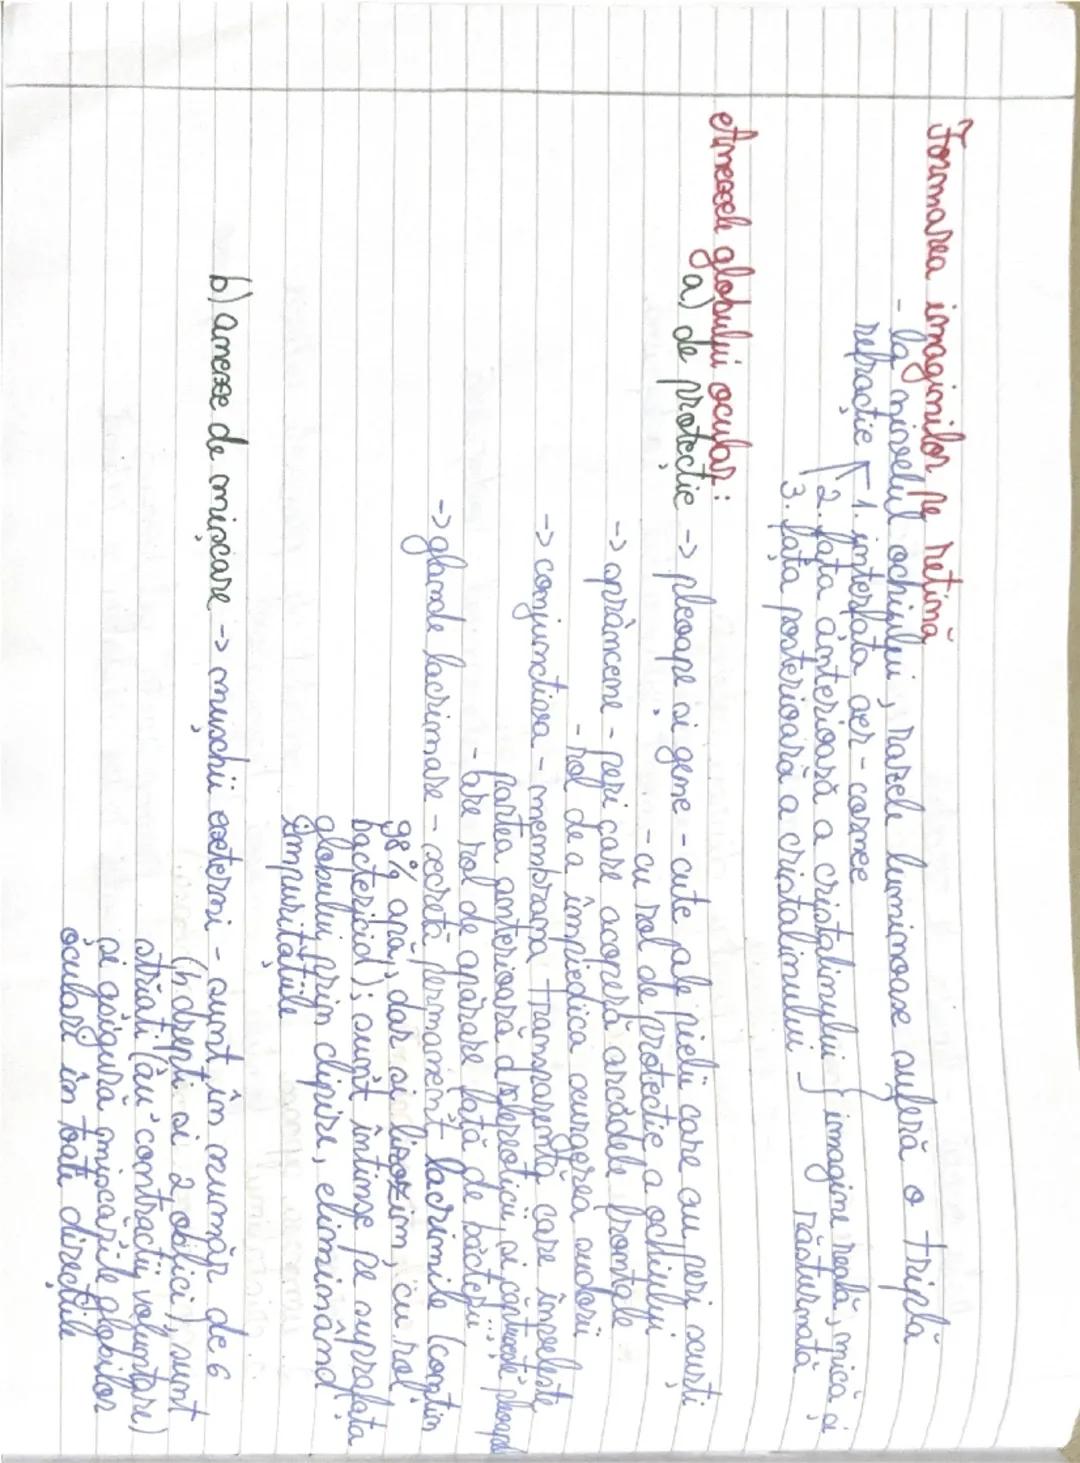 Formarea imaginilor pe retină
- la nivelul ochiului, razele luminoase suferă o triplă
refracție 1. interfața aer - cornee
2. fața anterioară a cristalinului
3. fața posterioară a cristalinului
imagine reală, mică și
răsturnată
Anexele globului ocular:
a) de protecție -> pleoape și gene - cute ale pielii care au peri scurti
- cu rol de protecție a ochiului
-> sprâncene - peri care acoperă arcadele frontale
- rol de a împiedica scurgerea sudorii
-> conjunctiva - membrana transparentă care învelește
partea anterioară a scleroticii și captușește pleoapele
- are rol de apărare față de bacterii
-> glande lacrimare - secretă permanent lacrimile (conțin
98% apă, dar și lizozim, cu rol
bactericid); sunt întinse pe suprafața
globului prin clipire, eliminând
impuritățiile
b) anexe de mișcare -> mușchii externi - sunt în număr de 6
(4 drepți si 2 oblici), sunt
striați (au contracții voluntare)
și asigură mișcările globilor
oculari în toate direcțiile